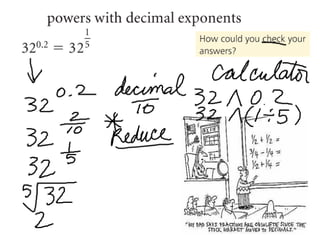 powers with decimal exponents
32^0.2 = 32^(1/5)
How could you check your
answers?
32^0.2 decimal/10
32^(2/10) * Reduce
32^(1/5)
⁵√32
2
calculator
32 ∧ 0.2
32 ∧ (1÷5)
½ + ½ =
¾ - ¼ =
½ + ¼ =
"MY DAD SAYS FRACTIONS ARE OBSOLETE SINCE THE
STOCK MARKET MOVED TO DECIMALS."